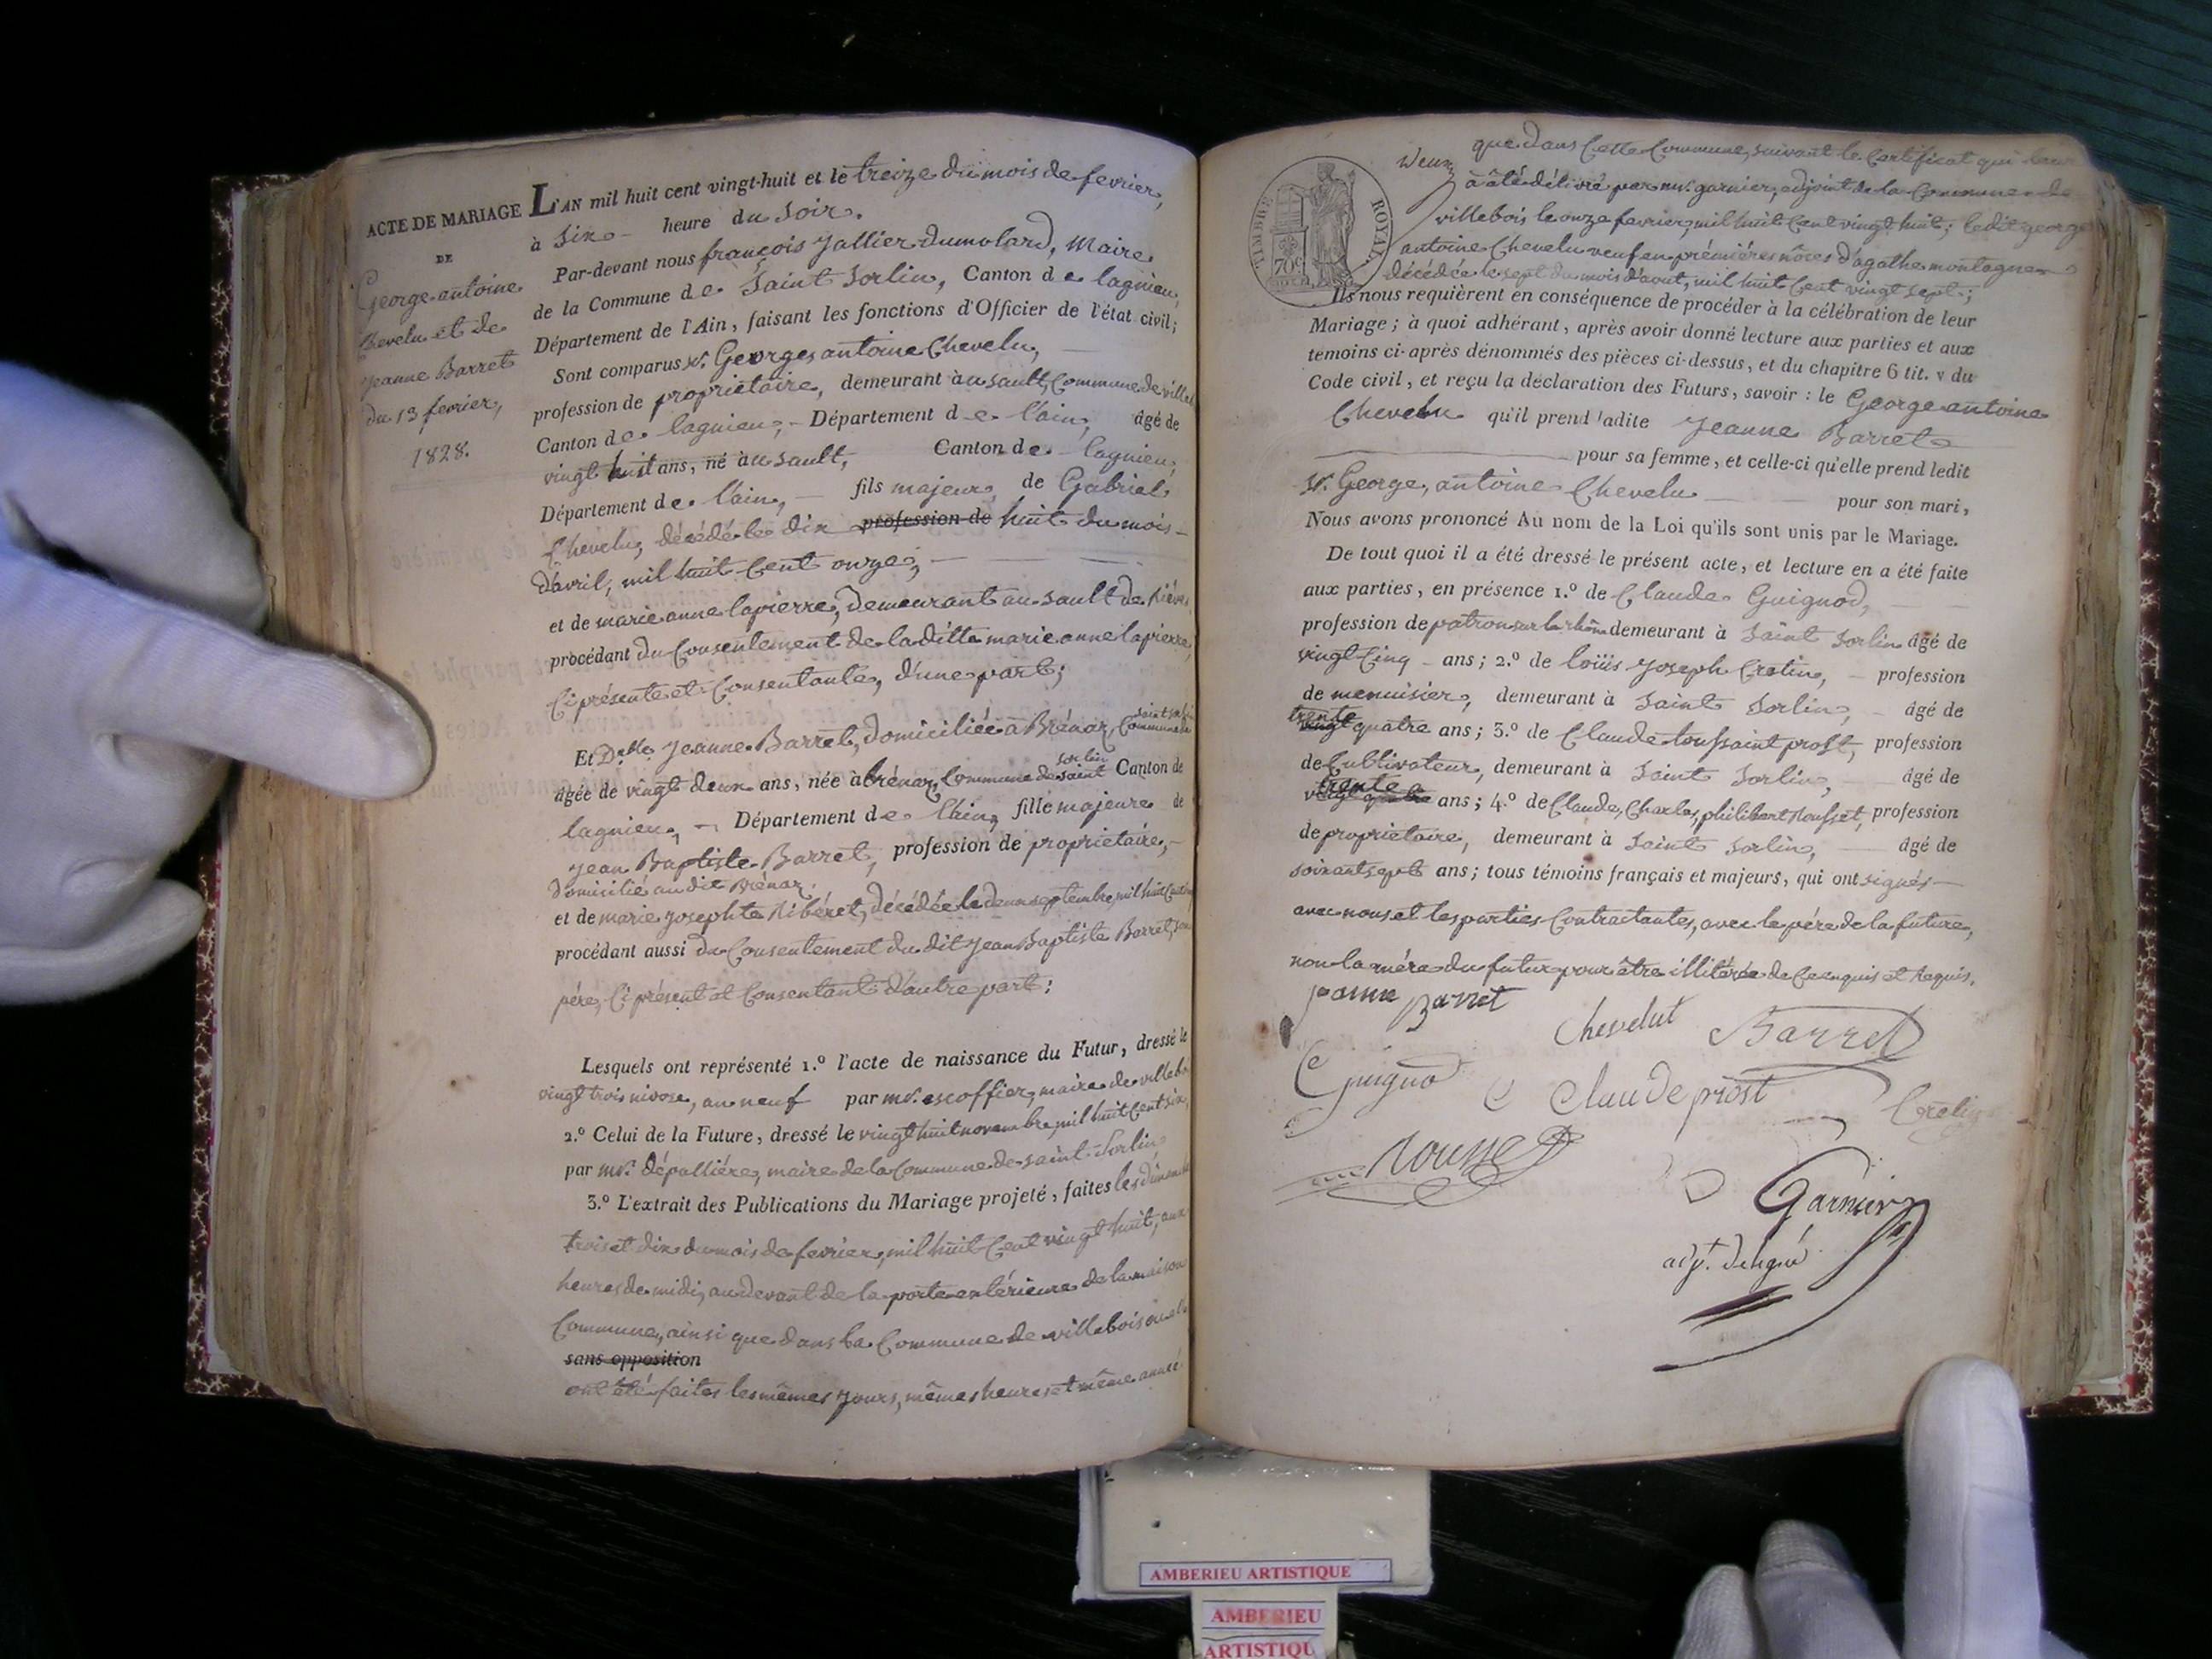 ACTE DE MARIAGE
DE
George antoine
Chevelu et de
Jeanne Barret
du 13 fevrier,
1828.
L'AN mil huit cent vingt-huit et le treize du mois de fevrier,
à six heure du soir.
Par-devant nous françois Jallier Dumolard, Maire
de la Commune de Saint Sorlin, Canton de lagnieu,
Département de l'Ain, faisant les fonctions d'Officier de l'état civil;
Sont comparus sr. George, antoine Chevelu,
profession de proprietaire, demeurant au sault, Commune de
Canton de lagnieu, Département de l'ain, âgé de
vingt huit ans, né au sault, Canton de lagnieu,
Département de l'ain, fils majeur de Gabriel
Chevelu, décédé le dix profession de huit du mois
d'avril, mil huit Cent onze,
et de marie anne lapierre, demeurant au sault de
procédant du Consentement de la ditte marie anne lapierre,
Ci présente et Consentante, d'une part;
Et Delle Jeanne Barret, domiciliée à Brénaz, Commune de
saint sorlin
âgée de vingt deux ans, née à brénaz, Commune de saint sorlin Canton de
lagnieu, Département de l'ain, fille majeure de
jean Baptiste Barret, profession de proprietaire,
Domicilié au dit Brénaz.
et de marie josephte Ribéret, décédée le deux septembre, mil huit
procédant aussi du Consentement du dit jean Baptiste Barret, son
pére, Ci présent et Consentant d'autre part:
Lesquels ont représenté 1.º l'acte de naissance du Futur, dressé le
vingt trois nivose, an neuf par mr. escoffier, maire de
2.º Celui de la Future, dressé le vingt huit novembre, mil huit Cent six,
par mr. dépalliére, maire de la Commune de saint Sorlin
3.º L'extrait des Publications du Mariage projeté, faites les
trois et dix du mois de fevrier, mil huit Cent vingt huit, aux
heures de midi, au devant de la porte extérieure de la maison
Commune, ainsi que dans la Commune de villebois
sans opposition
ont été faites les mêmes jours, mêmes heures et même année
TIMBRE ROYAL
70c
que dans Cette Commune, suivant le Certificat qui leur
à été délivré par mr. garnier, adjoint de la Commune de
villebois, le onze fevrier, mil huit Cent vingt huit; le dit george
antoine Chevelu veuf en prémiéres nôces d'agathe montagner
décédée le sept du mois d'aout, mil huit Cent vingt sept;
Ils nous requièrent en conséquence de procéder à la célébration de leur
Mariage; à quoi adhérant, après avoir donné lecture aux parties et aux
témoins ci-après dénommés des pièces ci-dessus, et du chapitre 6 tit. v du
Code civil, et reçu la déclaration des Futurs, savoir : le George antoine
Chevelu qu'il prend ladite Jeanne Barret
pour sa femme, et celle-ci qu'elle prend ledit
sr. George, antoine Chevelu pour son mari,
Nous avons prononcé Au nom de la Loi qu'ils sont unis par le Mariage.
De tout quoi il a été dressé le présent acte, et lecture en a été faite
aux parties, en présence 1.º de Claude Guignod,
profession de patron sur le rhône demeurant à Saint Sorlin âgé de
vingt Cinq ans; 2.º de loüis Joseph Cretin, profession
de menuisier, demeurant à Saint Sorlin, âgé de
trente
vingt quatre ans; 3.º de Claude toussaint prost, profession
de Cultivateur, demeurant à Saint Sorlin, âgé de
trente
vingt quatre ans; 4.º de Claude, Charles, philibert Rousset, profession
de proprietaire, demeurant à Saint Sorlin, âgé de
soixante sept ans; tous témoins français et majeurs, qui ont signés
avec nous et les parties Contractantes, avec le pére de la future,
non la mére du futur pour être illitérée de Ce enquis et requis.
Jeanne Barret
Chevelut
Barret
C Guignod
Claude prost
Cretin
Rousset
Garnier
adjt. délégué
AMBERIEU ARTISTIQUE
AMBERIEU
ARTISTIQU